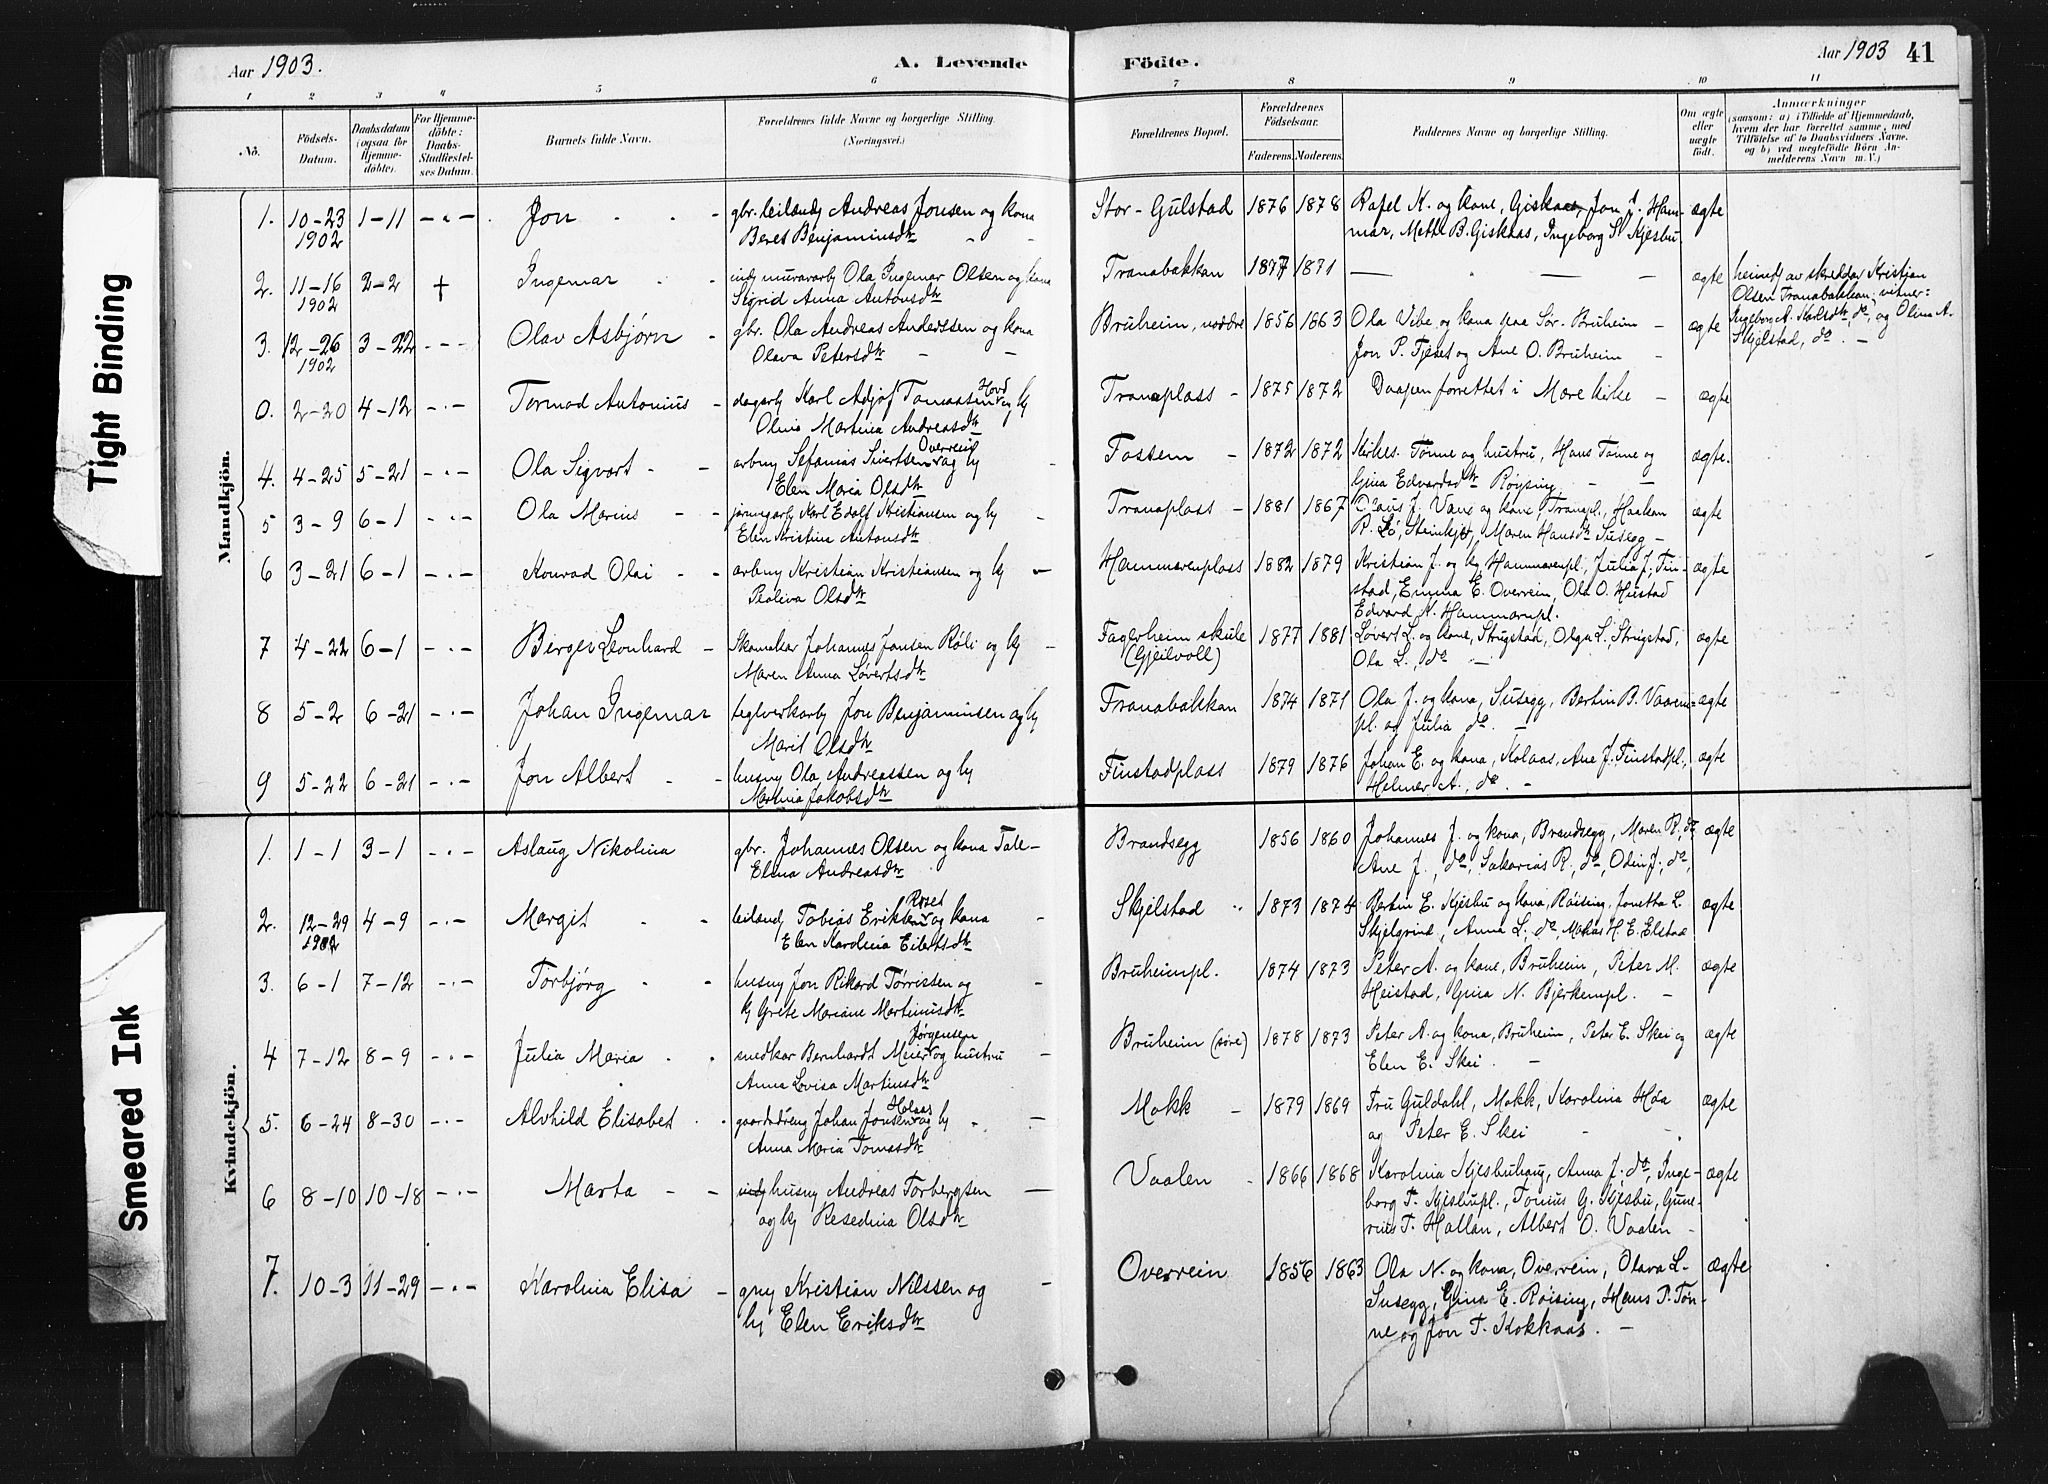 Aar 1903.
A. Levende
Födte.
Aar 1903
41
1 2 3 4 5 6 7 8 9 10 11
No.
Födsels-Datum.
Daabsdatum (ogsaa for Hjemmedöbte).
For Hjemmedöbte: Daabs-Stadfæstelses Datum.
Barnets fulde Navn.
Forældrenes fulde Navne og borgerlige Stilling.
(Næringsvei.)
Forældrenes Bopæl.
Forældrenes Födselsaar.
Faderens.
Moderens.
Faddernes Navne og borgerlige Stilling.
Om ægte eller uægte födt.
Anmærkninger
(saasom: a) i Tilfælde af Hjemmedaab, hvem der har forrettet samme, med Tilföielse af to Daabsvidners Navne. og b) ved uægtefödte Börn Anmelderens Navn m. V.)
Tight Binding
Smeared Ink
Mandkjön.
1. 10-23 1902 1-11 Jon gbr. leilændg Andreas Jonsen og kona Stor-Gulstad 1876 1878 Rafel K. og kone, Giskaas, Jon A. Ham- ægte
Beret Benjaminsdtr mar, Meth. B. Giskaas, Ingeborg S. Kjesbu
2. 11-16 1902 2-2 + Ingemar indg murararb Ola Ingemar Olsen og kona Tranabakkan 1877 1871 ægte heimdj av skreddar Kristjan
Sigrid Anna Antonsdtr Olsen Tranabakkan, vitner:
3. 12-26 1902 3-22 Olav Asbjörn gbr. Ola Andreas Anderssen og kona Bruheim, nordre 1856 1863 Ola Vibe og kona paa Sör-Bruheim ægte Ingeborg A. Karlsdtr, do, og Olina A.
Olava Petersdtr Jon P. Tjeset og Ane O. Bruheim Skjelstad, do.
0. 2-20 4-12 Tormod Antonius dagarb Karl Adjof Tomassen Hovd og kj Tranaplass 1875 1872 Daapen forrettet i Mære kirke ægte
Oline Martina Andreasdtr
4. 4-25 5-21 Ola Sigvart arbmg Sefanias Sivertsen Overrein og kj Fossem 1872 1872 Kirkes. Tönne og hustru, Hans Tönne og ægte.
Elen Maria Olsdtr Gina Edvardsdtr Röysing
5 3-9 6-1 Ola Marius jarnvgarb Karl Edolf Kristiansen og kj Tranaplass 1881 1867 Olaus J. Vane og kone, Tranapl., Haakon ægte
Elen Kristina Antonsdtr R. Lö, Steinkjer, Maren Hansdtr Susegg
6 3-21 6-1 Konrad Olai arbmg Kristian Kristiansen og kj Hammerenplass 1882 1879 Kristian J. og kj, Hammerenpl., Julia J. Fin- ægte
Peoliva Olsdtr stad, Emma E. Overrein, Ola O. Hustad
Edvard K. Hammerenpl.
7 4-22 6-1 Birger Leonhard Skomakar Johannes Jonsen Röli og kj Fagerheim skule (Gjeilvoll) 1877 1881 Lövert L. og kone, Strugstad, Olga L. Strugstad, ægte
Maren Anna Lövertsdtr Ola L., do
8 5-2 6-21 Johan Ingemar teglverkarb Jon Benjaminsen og kj Tranabakkan 1874 1871 Ola J. og kona, Susegg, Bertin B. Vaarem- ægte
Marit Olsdtr pl. og Julia do.
9 5-22 6-21 Jon Albert husmg Ola Andreassen og kj Finstadplass 1879 1876 Johan E. og kona, Kolaas, Ane J. Finstadpl., ægte
Martina Jakobsdtr Helmer A., do.
Kvindekjön.
1. 1-1 3-1 Aslaug Nikolina gbr. Johannes Olsen og kona Tale- Brandsegg 1856 1860 Johannes J. og kona, Brandsegg, Maren R., do, ægte
Elina Andreasdtr Ane J., do, Sakarias R., do, Odin J., do,
2. 12-29 1902 4-9 Margit leilændg Tobias Eriksen Röset og kona Skjelstad 1873 1874 Bertin E. Kjesbu og kona, Röising, Jonetta L. ægte
Elen Karolina Eilertsdtr Skjelgrind, Anna L. do, H. E. Elstad
3. 6-1 7-12 Torbjörg husmg Jon Rikard Törrissen og Bruheimpl. 1874 1873 Peter A. og kone, Bruheim, Peter M. ægte
kj Grete Mariane Martinusdtr Heistad, Gina N. Bjerkempl.
4 7-12 8-9 Julia Maria snedkar Bernhardt Meier Jörgensen og hustru Bruheim (söre) 1878 1873 Peter A. og kona, Bruheim, Peter E. Skei og ægte
Anna Lovisa Martinsdtr Elen E. Skei.
5. 6-24 8-30 Alvhild Elisabet gaardsdreng Johan Jonsen Holaas og kj Mokk 1879 1869 Fru Guldahl, Mokk, Karolina Hoa ægte
Anna Maria Tomasdtr og Peter E. Skei
6 8-10 10-18 Marta indg husmg Andreas Torbergsen Vaalen 1866 1868 Karolina Kjesbuhaug, Anna J. do, Inge- ægte
og kj Resedina Olsdtr borg T. Kjesbupl., Tonius G. Kjesbu, Gune-
rius T. Hallan, Albert O. Vaalen
7. 10-3 11-29 Karolina Elisa gmg Kristian Nilssen og Overrein 1856 1863 Ola N. og kona, Overrein, Olava L. ægte
kj Elen Eriksdtr Susegg, Gina E. Röising, Hans P. Tön-
ne og Jon T. Kokkaas.